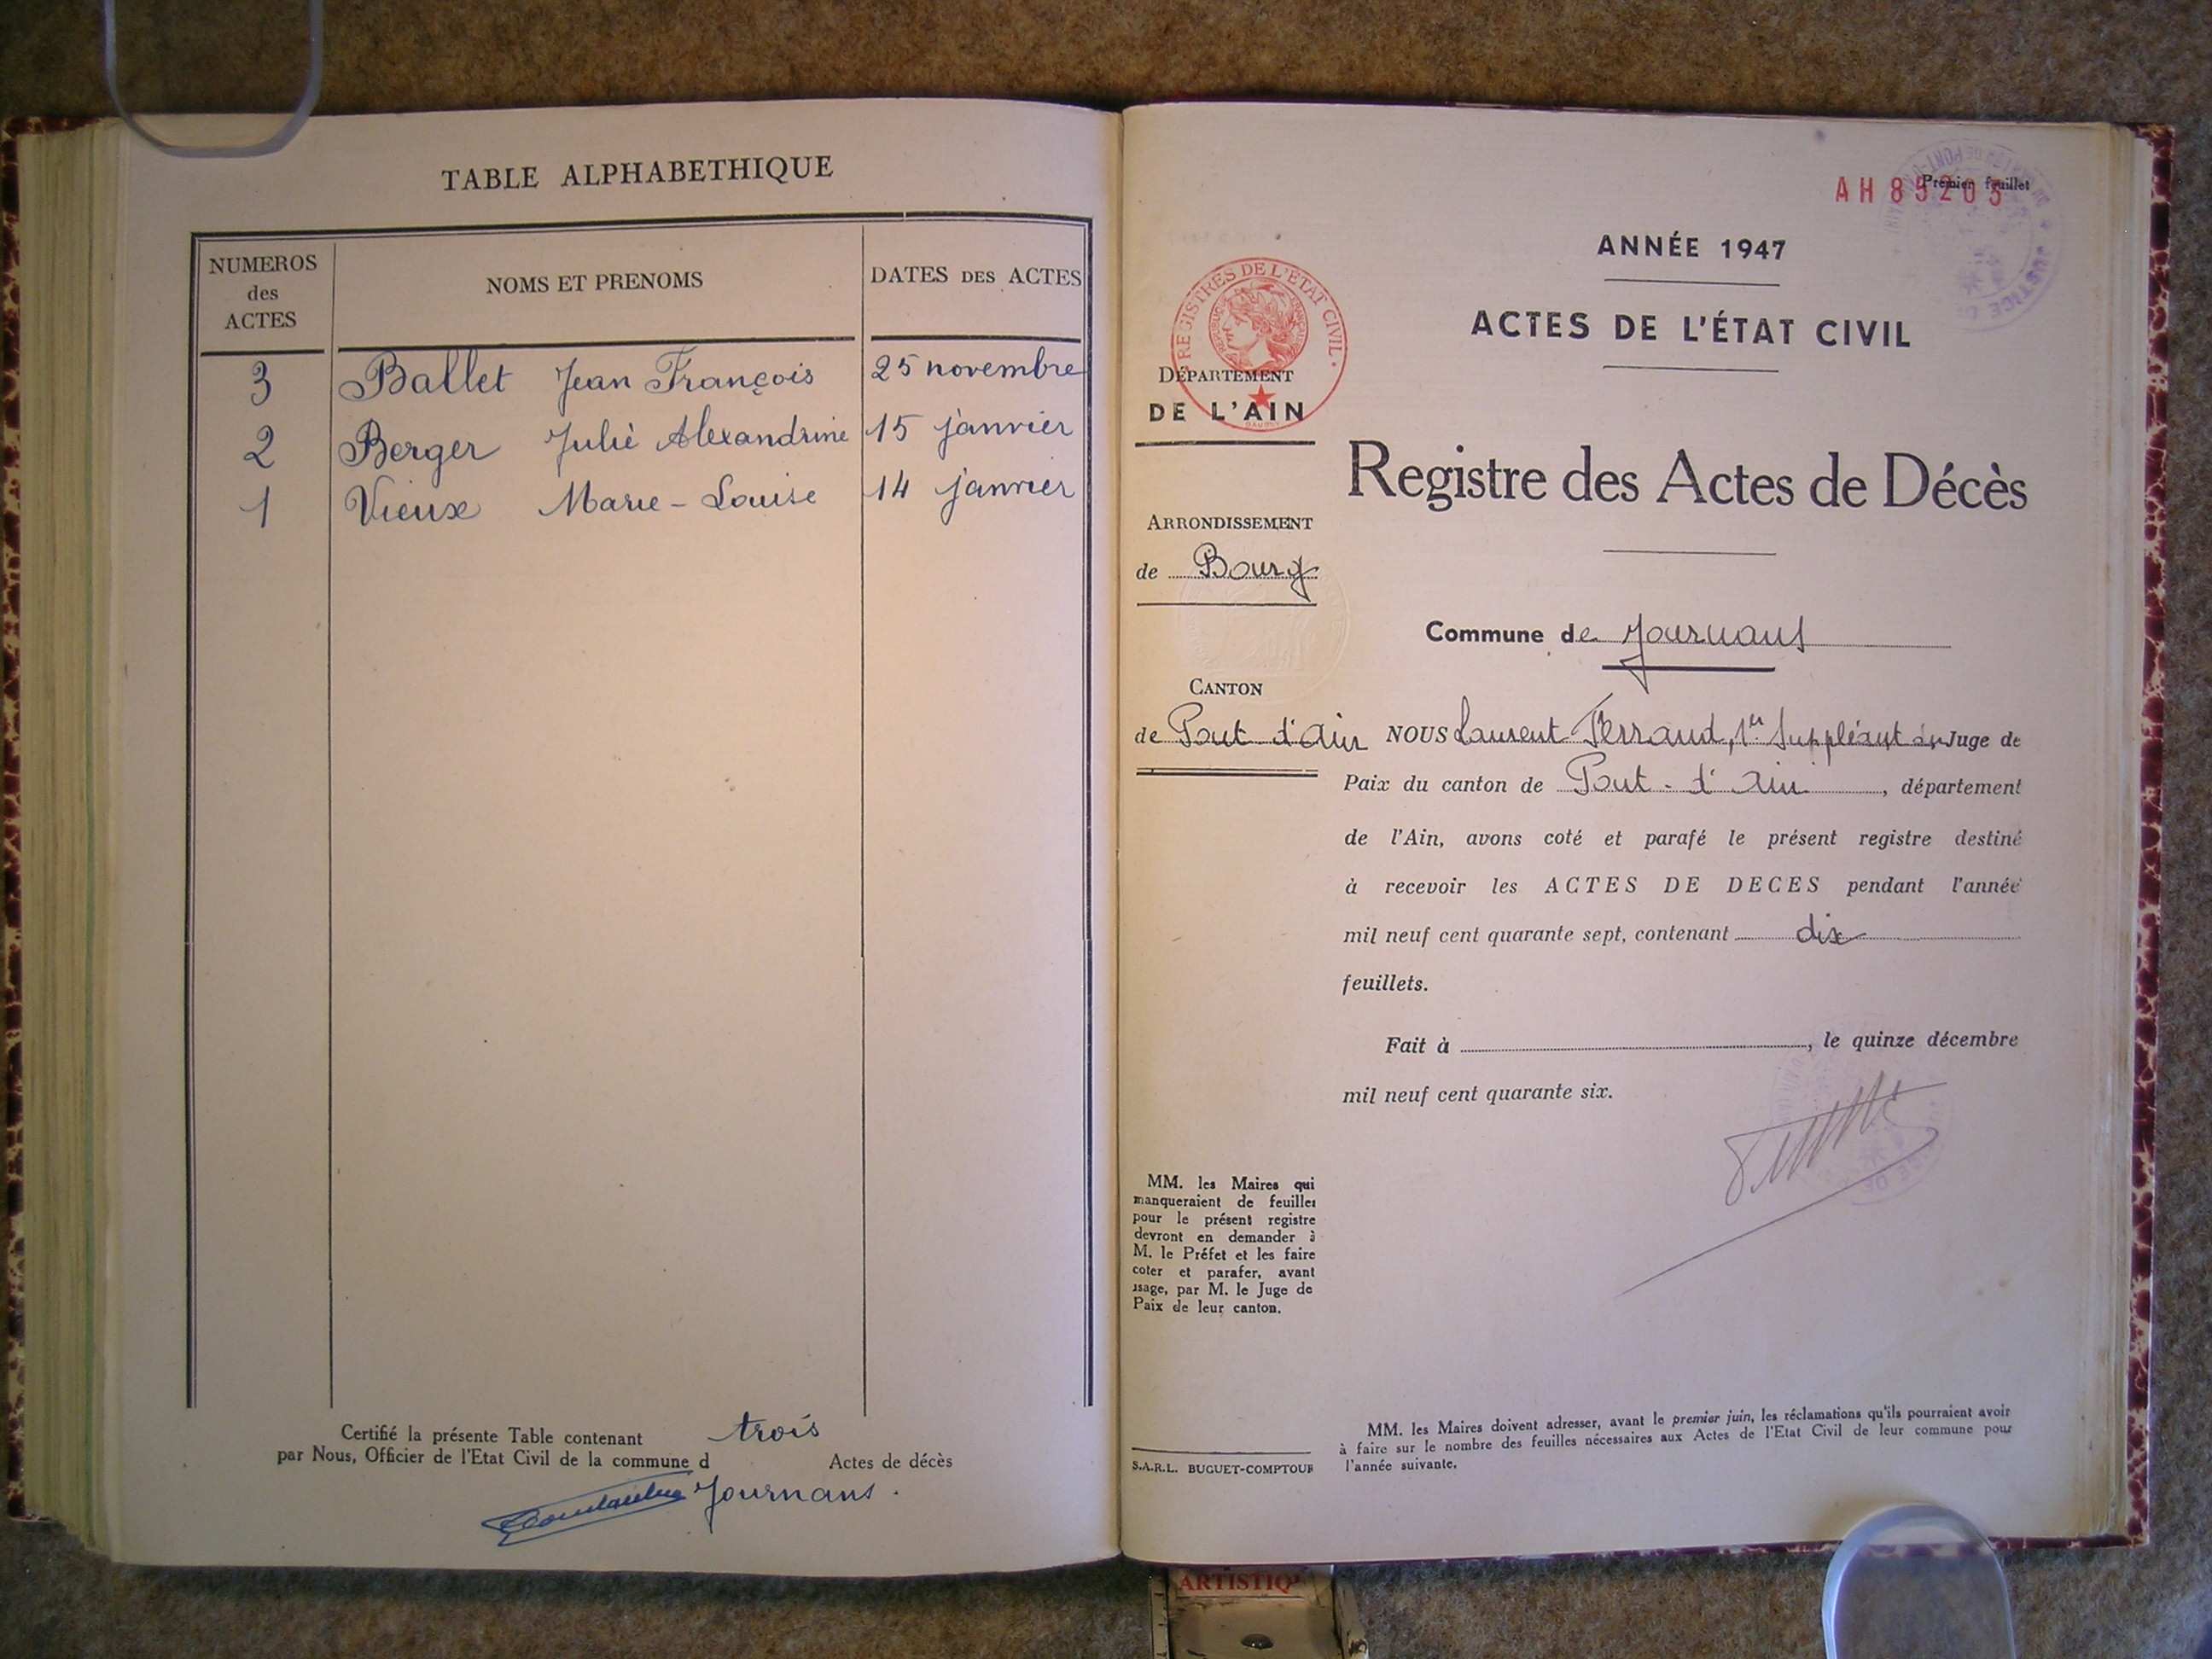 TABLE ALPHABETHIQUE
NUMEROS
des
ACTES
NOMS ET PRENOMS
DATES DES ACTES
3 Ballet Jean François 25 novembre
2 Berger Julie Alexandrine 15 janvier
1 Vieux Marie-Louise 14 janvier
Certifié la présente Table contenant trois
par Nous, Officier de l'Etat Civil de la commune d Actes de décès
Journans.
AH 89203
Premier feuillet
ANNÉE 1947
ACTES DE L'ÉTAT CIVIL
REGISTRES DE L'ÉTAT CIVIL
DÉPARTEMENT
DE L'AIN
Registre des Actes de Décès
ARRONDISSEMENT
de Bourg
Commune de Journans
CANTON
de Pont d'Ain
NOUS Laurent Ferrand, 1er Suppléant du Juge de
Paix du canton de Pont-d'Ain, département
de l'Ain, avons coté et parafé le présent registre destiné
à recevoir les ACTES DE DECES pendant l'année
mil neuf cent quarante sept, contenant dix
feuillets.
Fait à , le quinze décembre
mil neuf cent quarante six.
MM. les Maires qui
manqueraient de feuilles
pour le présent registre
devront en demander à
M. le Préfet et les faire
coter et parafer, avant
usage, par M. le Juge de
Paix de leur canton.
S.A.R.L. BUGUET-COMPTOUR
MM. les Maires doivent adresser, avant le premier juin, les réclamations qu'ils pourraient avoir
à faire sur le nombre des feuilles nécessaires aux Actes de l'Etat Civil de leur commune pour
l'année suivante.
ARTISTIQ